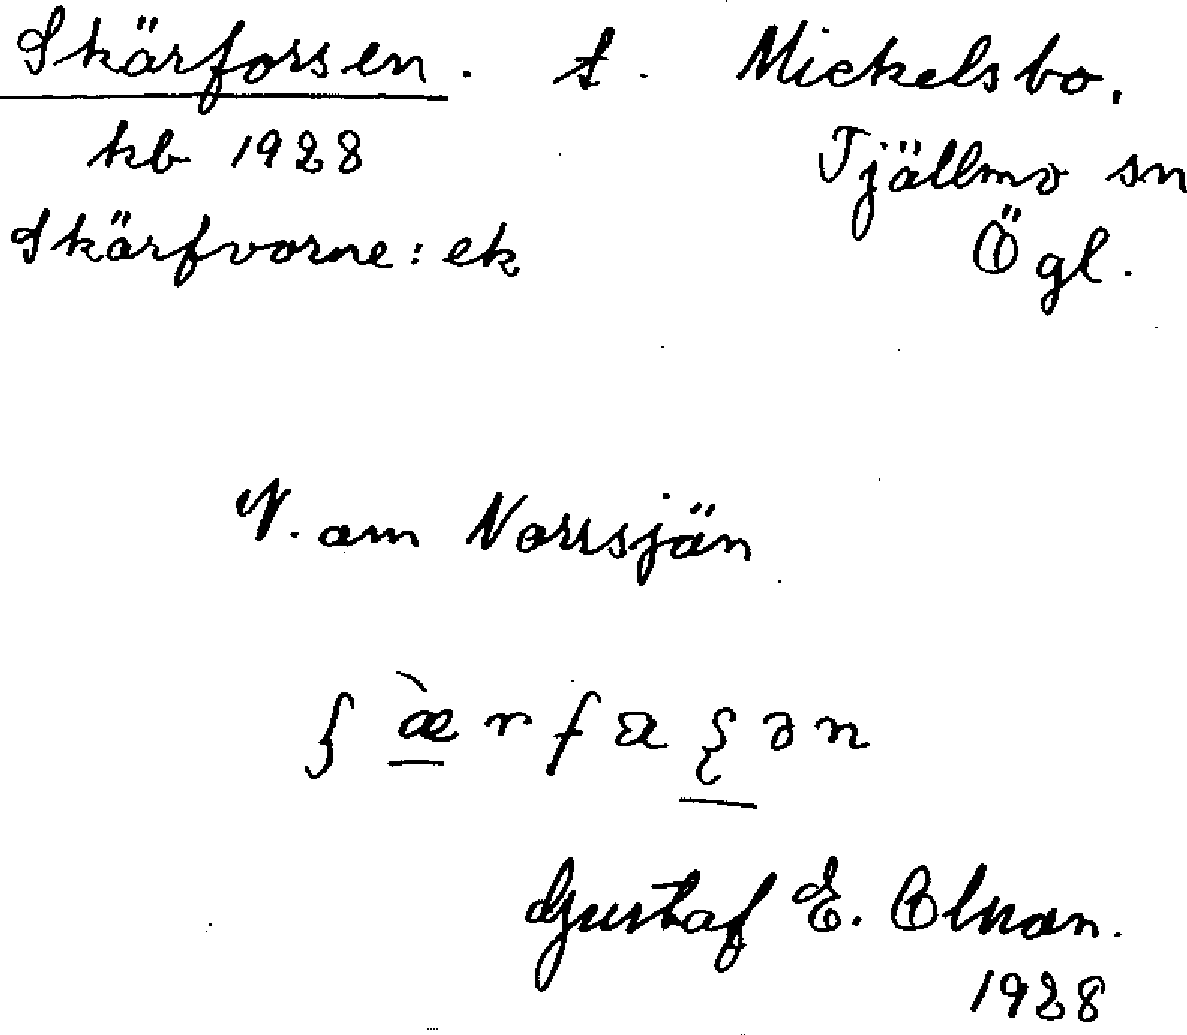 Skärforsen. t. Mickelsbo.
kb 1928 Tjällmo sn
Skärfvorne: ek Ögl.
V. om Norrsjön
Gustaf E. Olson.
1928